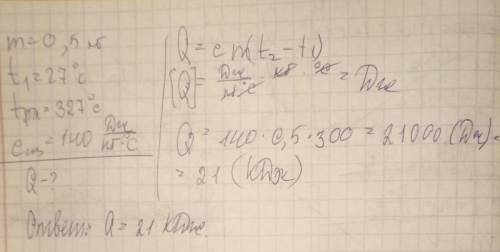 m=0,5 кг
t₁=27°C
tпл=327°C
cсв=140 Дж/кг·°C
Q-?
Q=cm(t₂-t₁)
[Q]=Дж/кг·°C · кг · °C = Дж
Q=140·0,5·300=21000(Дж)=
=21(кДж)
Ответ: Q=21 кДж.